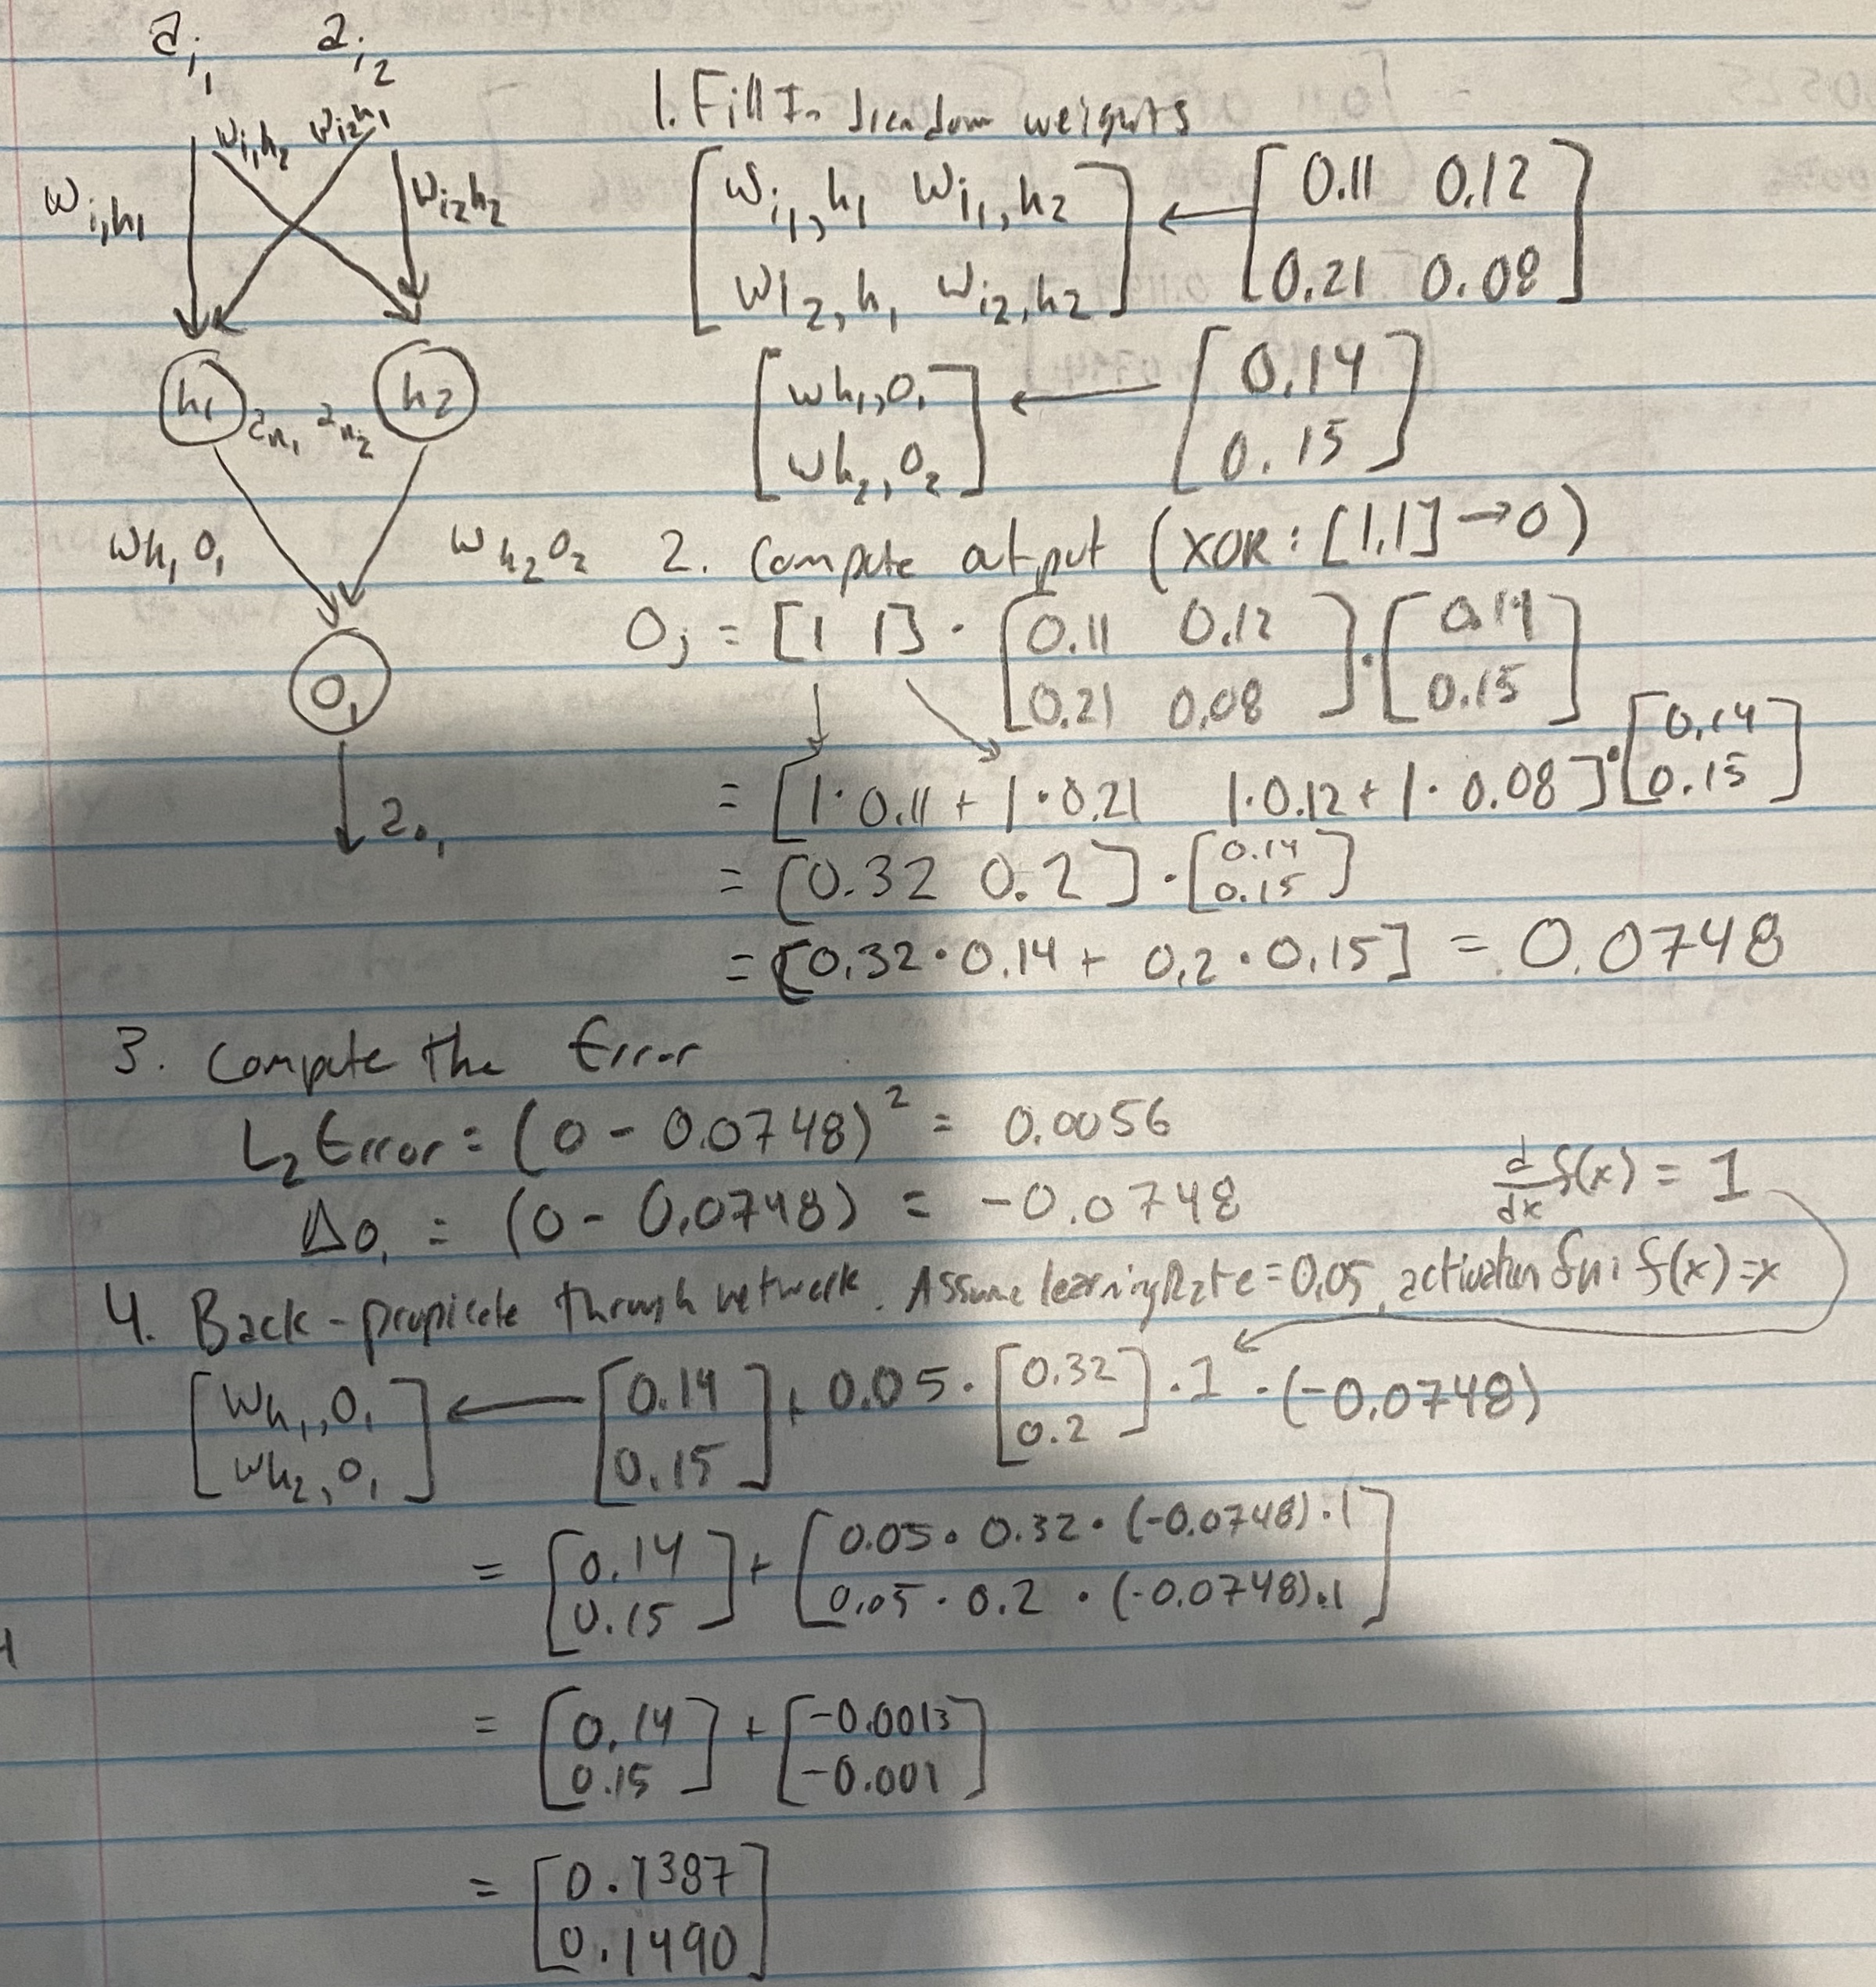 a_i_1 a_i_2
w_i_1h_1 w_i_1h_2 w_i_2h_1 w_i_2h_2
h_1 a_h_1 a_h_2 h_2
w_h_1o_1 w_h_2o_2
o_1
a_o_1
1. Fill In weights
[w_i_1,h_1 w_i_1,h_2 ← [0.11 0.12
w_i_2,h_1 w_i_2,h_2] 0.21 0.08]
[w_h_1,o_1 ← [0.14
w_h_2,o_2] 0.15]
2. Compute output (XOR: [1,1] → 0)
O_j = [1 1] · [0.11 0.12 · [0.14
0.21 0.08] 0.15]
= [1·0.11 + 1·0.21 1·0.12 + 1·0.08] · [0.14
0.15]
= [0.32 0.2] · [0.14
0.15]
= [0.32·0.14 + 0.2·0.15] = 0.0748
3. Compute the Error
L_2 Error = (0 - 0.0748)² = 0.0056
Δo_1 = (0 - 0.0748) = -0.0748
d/dx f(x) = 1
4. Back-propicate through network. Assume learningRate = 0.05, activation fn: f(x) = x
[w_h_1,o_1 ← [0.14 + 0.05 · [0.32 · 1 · (-0.0748)
w_h_2,o_1] 0.15] 0.2]
= [0.14 + [0.05 · 0.32 · (-0.0748) · 1
0.15] 0.05 · 0.2 · (-0.0748) · 1]
= [0.14 + [-0.0013
0.15] -0.001]
= [0.1387
0.1490]